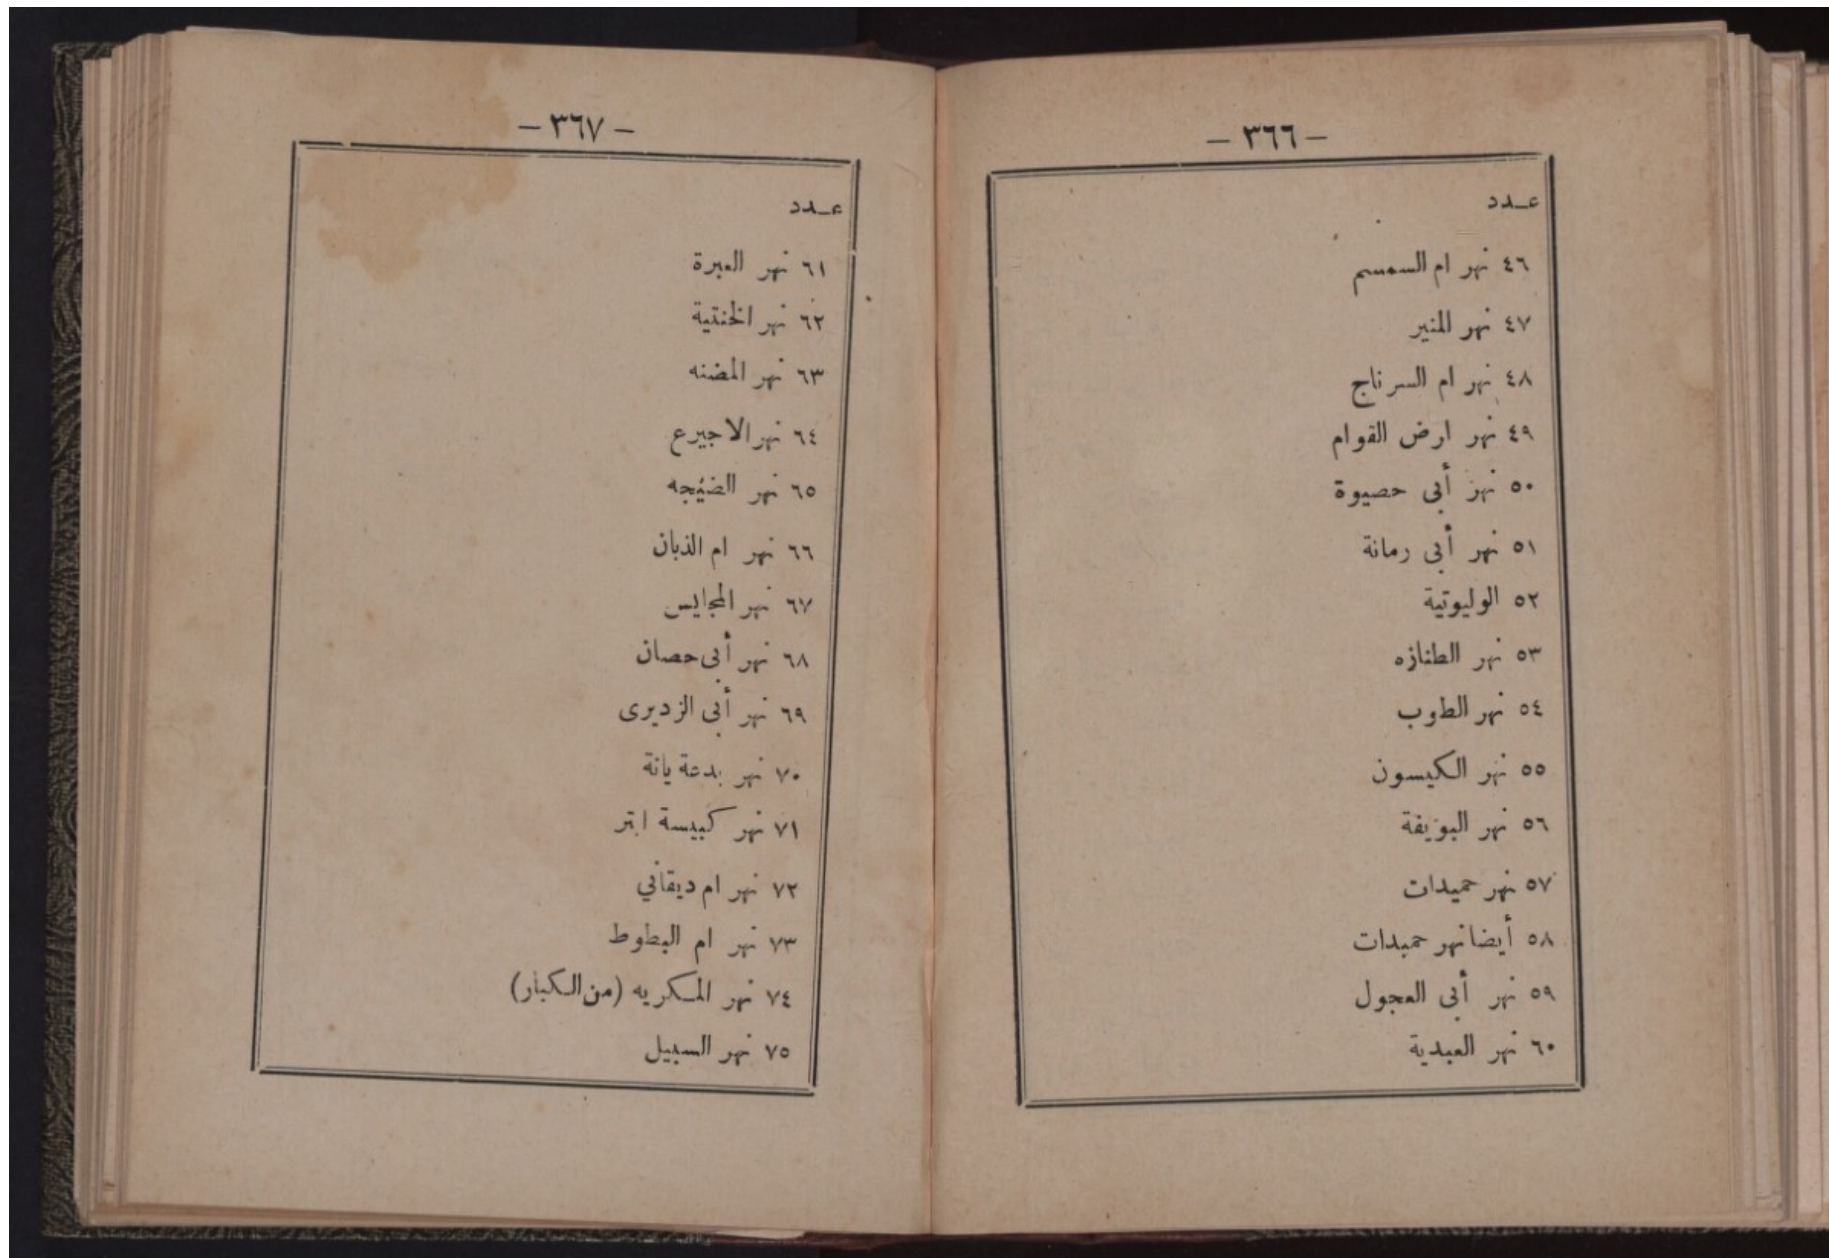 — ٣٦٦ —
عـدد
٤٦ نهر ام السمسم
٤٧ نهر المنير
٤٨ نهر ام السرناج
٤٩ نهر ارض القوام
٥٠ نهر أبى حصيوة
٥١ نهر أبى رمانة
٥٢ الوليوتية
٥٣ نهر الطنازه
٥٤ نهر الطوب
٥٥ نهر الكيسون
٥٦ نهر البوَيقة
٥٧ نهر حميدات
٥٨ أيضا نهر حميدات
٥٩ نهر أبى العجول
٦٠ نهر العبدية
— ٣٦٧ —
عـدد
٦١ نهر العبرة
٦٢ نهر الخنتية
٦٣ نهر المضنه
٦٤ نهر الاجيرع
٦٥ نهر
٦٦ نهر ام الذبان
٦٧ نهر المجايس
٦٨ نهر أبى حصان
٦٩ نهر أبى الزديرى
٧٠ نهر بدعة يانة
٧١ نهر كبيسة ابتر
٧٢ نهر ام ديقاني
٧٣ نهر ام البطوط
٧٤ نهر المكريه (من الكبار)
٧٥ نهر السبيل